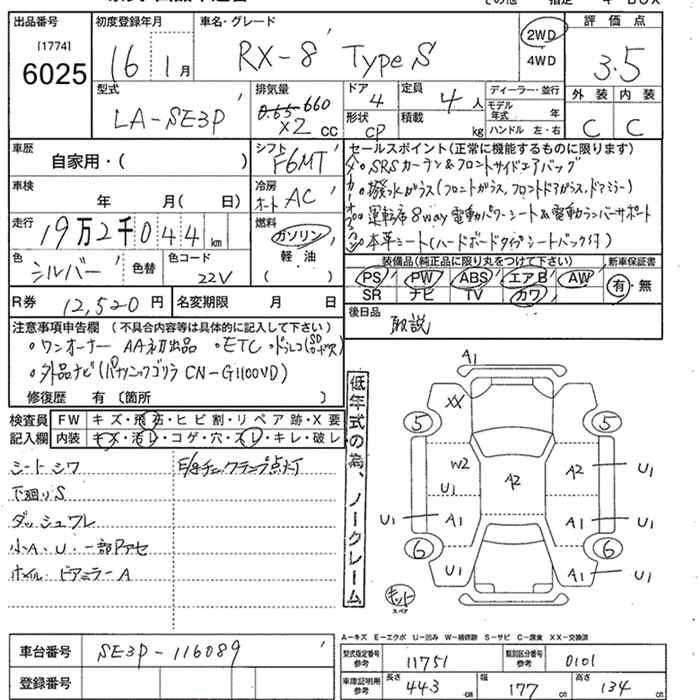 出品番号 初度登録年月 車名・グレード 評価点
[1774] 6025 16 1月 RX-8 Type S 2WD 4WD 3.5
外装 内装
C C
型式 LA-SE3P
排気量 0.65 660 ×2 cc
ドア 4 定員 4人
形状 CP 積載 kg
ディーラー・並行
モデル年式 年
ハンドル 左・右
車歴 自家用・( )
シフト F6MT
セールスポイント(正常に機能するものに限ります)
SRSカーテン&フロントサイドエアバッグ
撥水ガラス(フロントガラス,フロントドアガラス,ドアミラー)
運転席8way電動パワーシート&電動ランバーサポート
本革シート(ハードボードタイプシートバック付)
車検 年 月( 日)
冷房 オート AC
走行 19万2千044km
燃料 ガソリン 軽油 ( )
色 シルバー 色替 色コード 22V
装備品(純正品に限り丸をつけて下さい) 新車保証書
PS PW ABS エアB AW 有・無
SR ナビ TV カワ
R券 12,520円 名変期限 月 日
後日品 取説
注意事項申告欄 (不具合内容等は具体的に記入して下さい)
・ワンオーナー AA初出品 ・ETC
・外品ナビ(パナソニックゴリラ CN-G1100VD)
修復歴 有(箇所 )
検査員記入欄 FW キズ・飛石・ヒビ割・リペア跡・X要
内装 キズ・汚レ・コゲ・穴・スレ・キレ・破レ
シートシワ F/Eチェックランプ点灯
下廻りS
ダッシュワレ
小A、U、一部Pアセ
ホイル・ドアミラーA
低年式の為、ノークレーム
A1
XX
5 5
W2 A2 A2 U1
U1
U1 A1 A1 U1
6 6
U1 A1 U1
キット
スペア
A-キズ E-エクボ U-凹み W-補修跡 S-サビ C-腐食 XX-交換済
車台番号 SE3P-116089
登録番号
型式指定番号 参考 11751 類別区分番号 参考 0101
車庫証明用 参考 長さ 443cm 幅 177cm 高さ 134cm